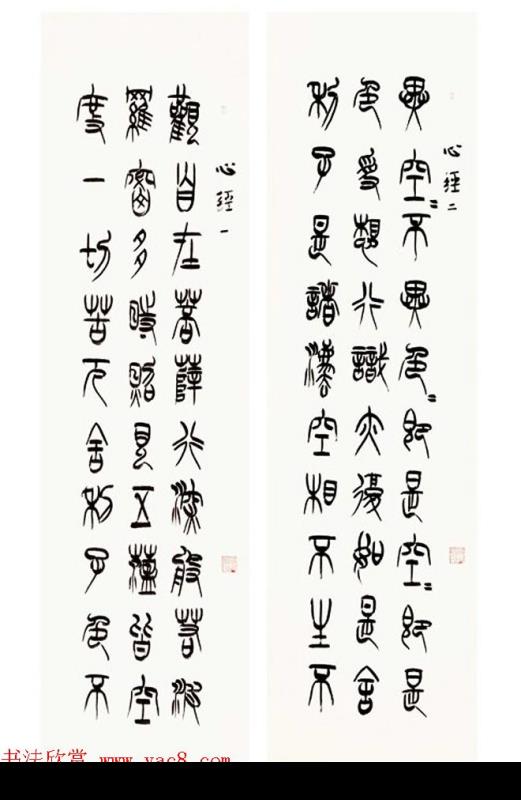 心經一
觀自在菩薩行深般若波
羅蜜多時照見五蘊皆空
度一切苦厄舍利子色不
心經二
異空〻不異色〻即是空〻即是
色受想行識亦復如是舍
利子是諸灋空相不生不
书法欣赏 www.yac8.com